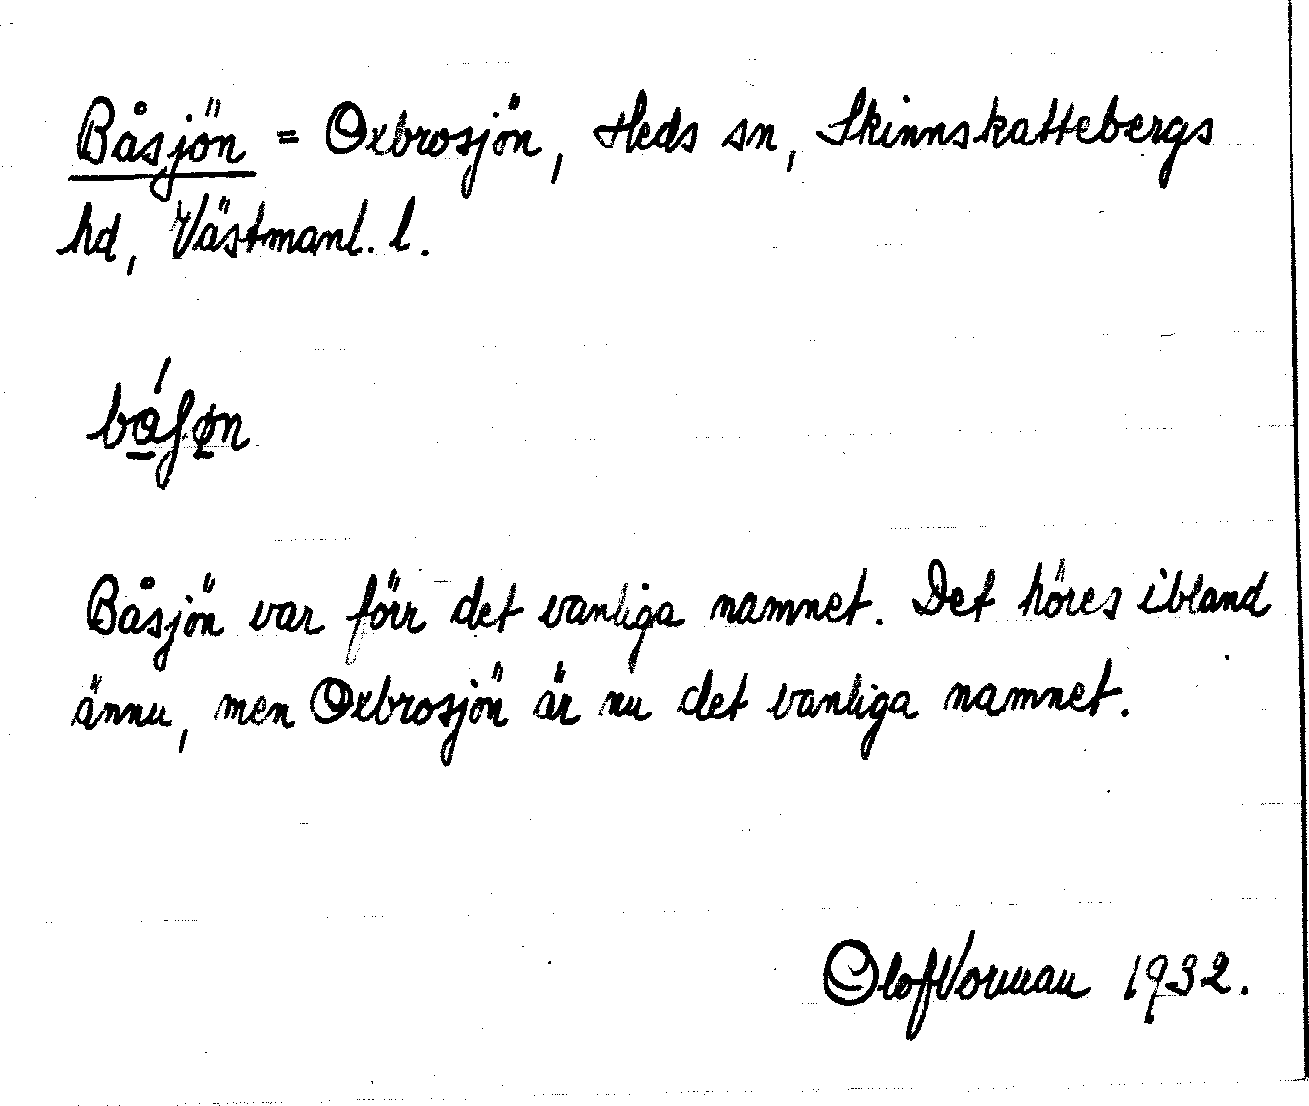 Båsjön = Oxbrosjön, Heds sn, Skinnskattebergs
hd, Västmanl. l.
Båsjön var förr det vanliga namnet. Det höres ibland
ännu, men Oxbrosjön är nu det vanliga namnet.
Olof Vorman 1932.